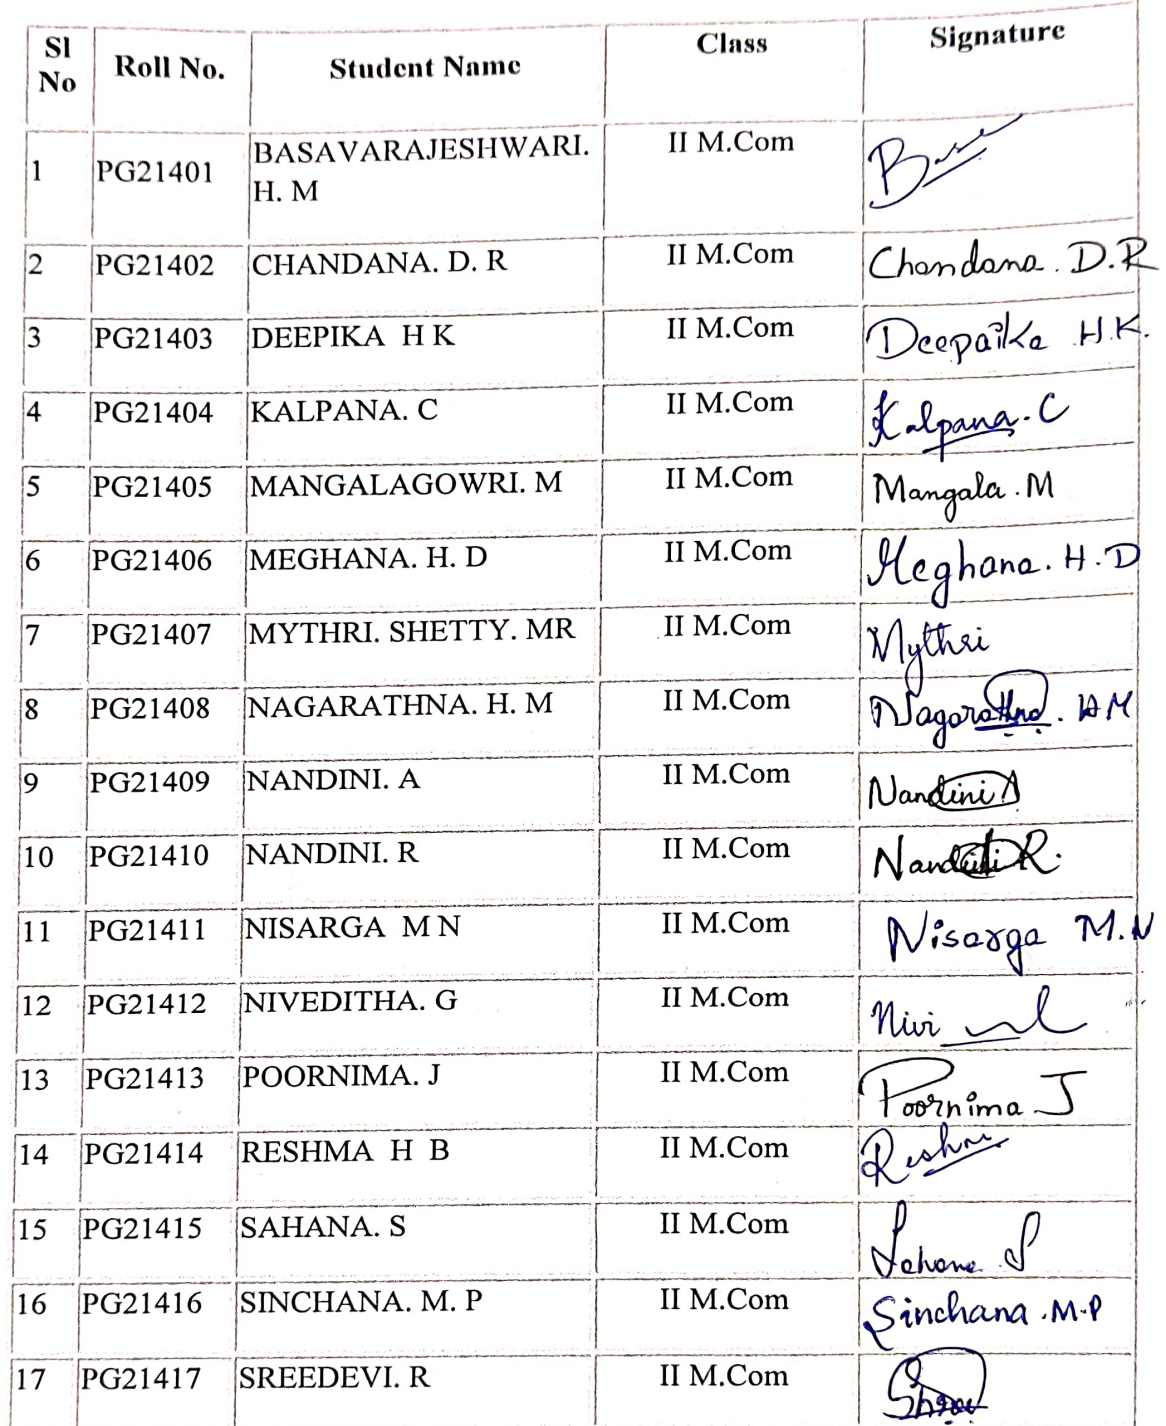 Sl No Roll No. Student Name Class Signature
1 PG21401 BASAVARAJESHWARI. H. M II M.Com
2 PG21402 CHANDANA. D. R II M.Com Chandana. D.R
3 PG21403 DEEPIKA H K II M.Com Deepaika H.K.
4 PG21404 KALPANA. C II M.Com Kalpana. C
5 PG21405 MANGALAGOWRI. M II M.Com Mangala. M
6 PG21406 MEGHANA. H. D II M.Com Meghana. H. D
7 PG21407 MYTHRI. SHETTY. MR II M.Com Mythri
8 PG21408 NAGARATHNA. H. M II M.Com Nagarathna. HM
9 PG21409 NANDINI. A II M.Com Nandini A
10 PG21410 NANDINI. R II M.Com Nandini R.
11 PG21411 NISARGA M N II M.Com Nisarga M.N
12 PG21412 NIVEDITHA. G II M.Com Nivi
13 PG21413 POORNIMA. J II M.Com Poornima J
14 PG21414 RESHMA H B II M.Com Reshm
15 PG21415 SAHANA. S II M.Com Sahana S
16 PG21416 SINCHANA. M. P II M.Com Sinchana .M.P
17 PG21417 SREEDEVI. R II M.Com